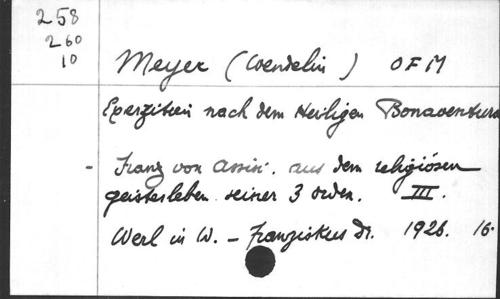 258
260
10
Meyer (Wendelin) OFM
Exerzitien nach dem Heiligen Bonaventura
- Franz von Assisi. aus dem religiösen
geistesleben seiner 3 orden. III.
Werl in W. - Franziskus Dr. 1926. 16.